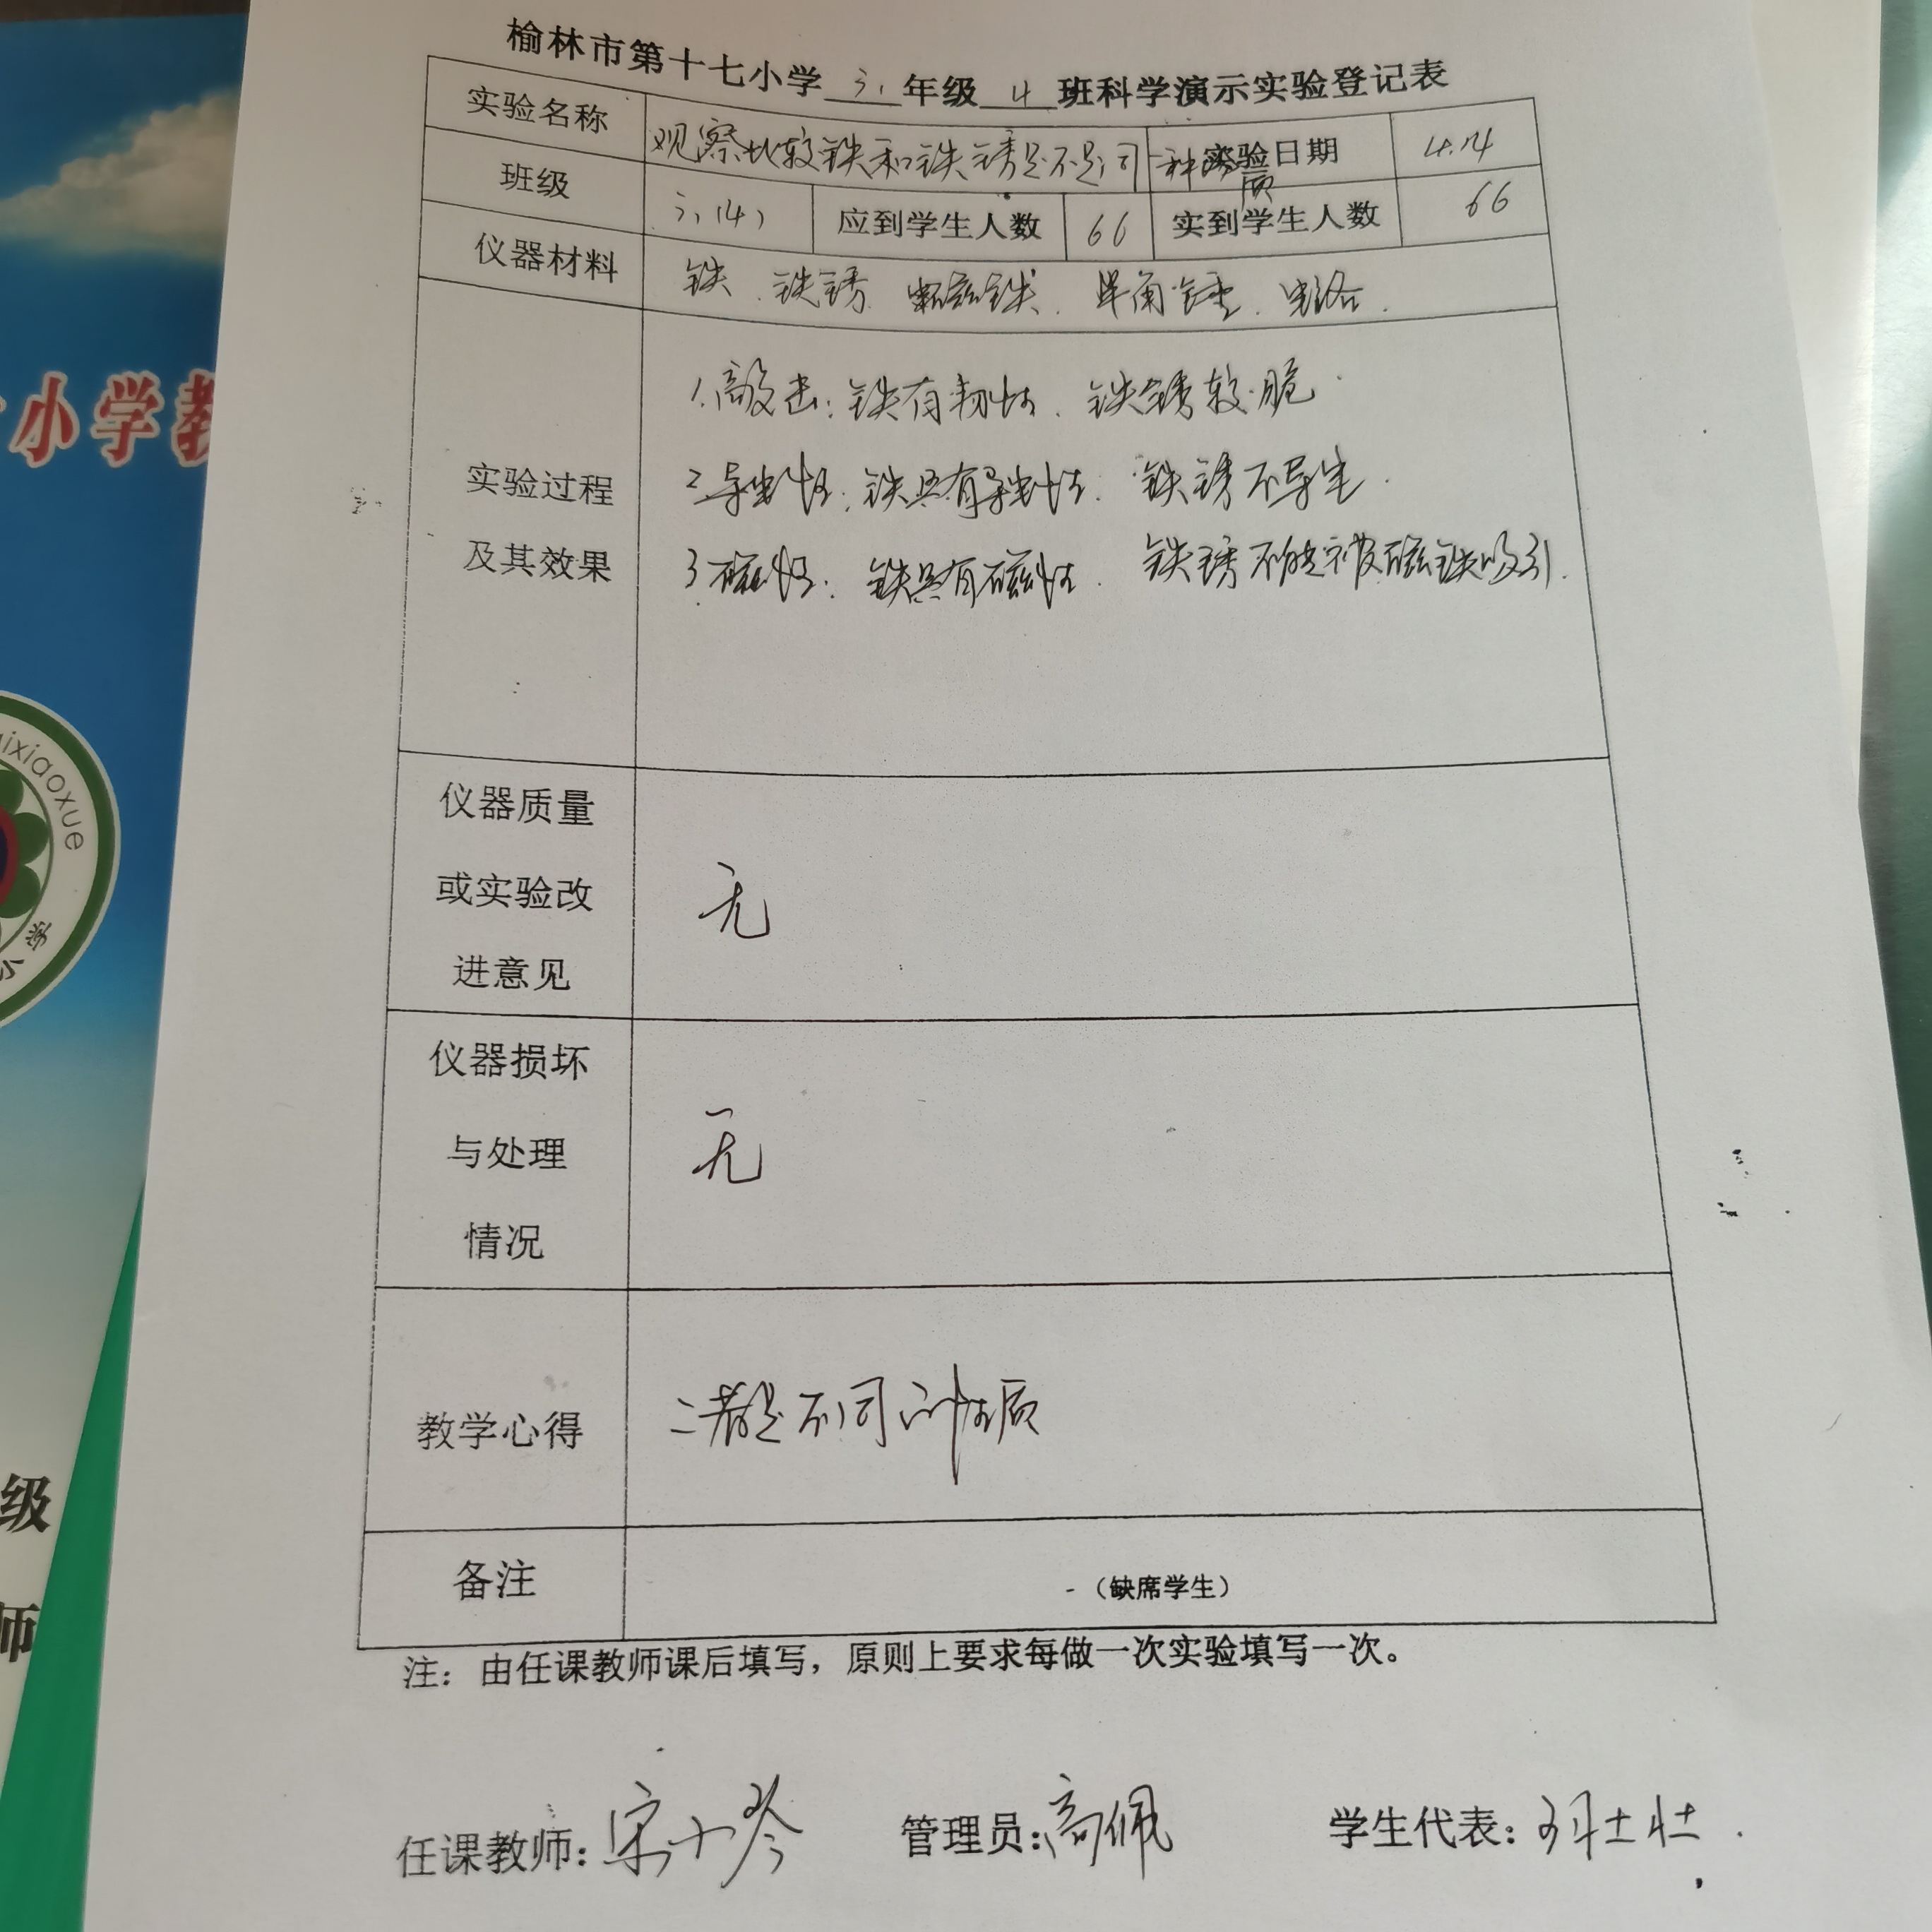 榆林市第十七小学 三 年级 4 班科学演示实验登记表
实验名称 观察比较铁和铁锈是不是同一种物质 实验日期 4.14
班级 三(4) 应到学生人数 66 实到学生人数 66
仪器材料 铁、铁锈、磁铁、羊角锤、电路.
1.敲击:铁有韧性、铁锈较脆.
实验过程 2.导电性:铁具有导电性、铁锈不导电.
及其效果 3.磁性:铁具有磁性、铁锈不能被磁铁吸引.
仪器质量
或实验改 无
进意见
仪器损坏
与处理 无
情况
教学心得 二者是不同的性质
备注 (缺席学生)
注:由任课教师课后填写,原则上要求每做一次实验填写一次。
任课教师:宋 管理员:高佩 学生代表:
小学教
ixiaoxue
小学
级
师